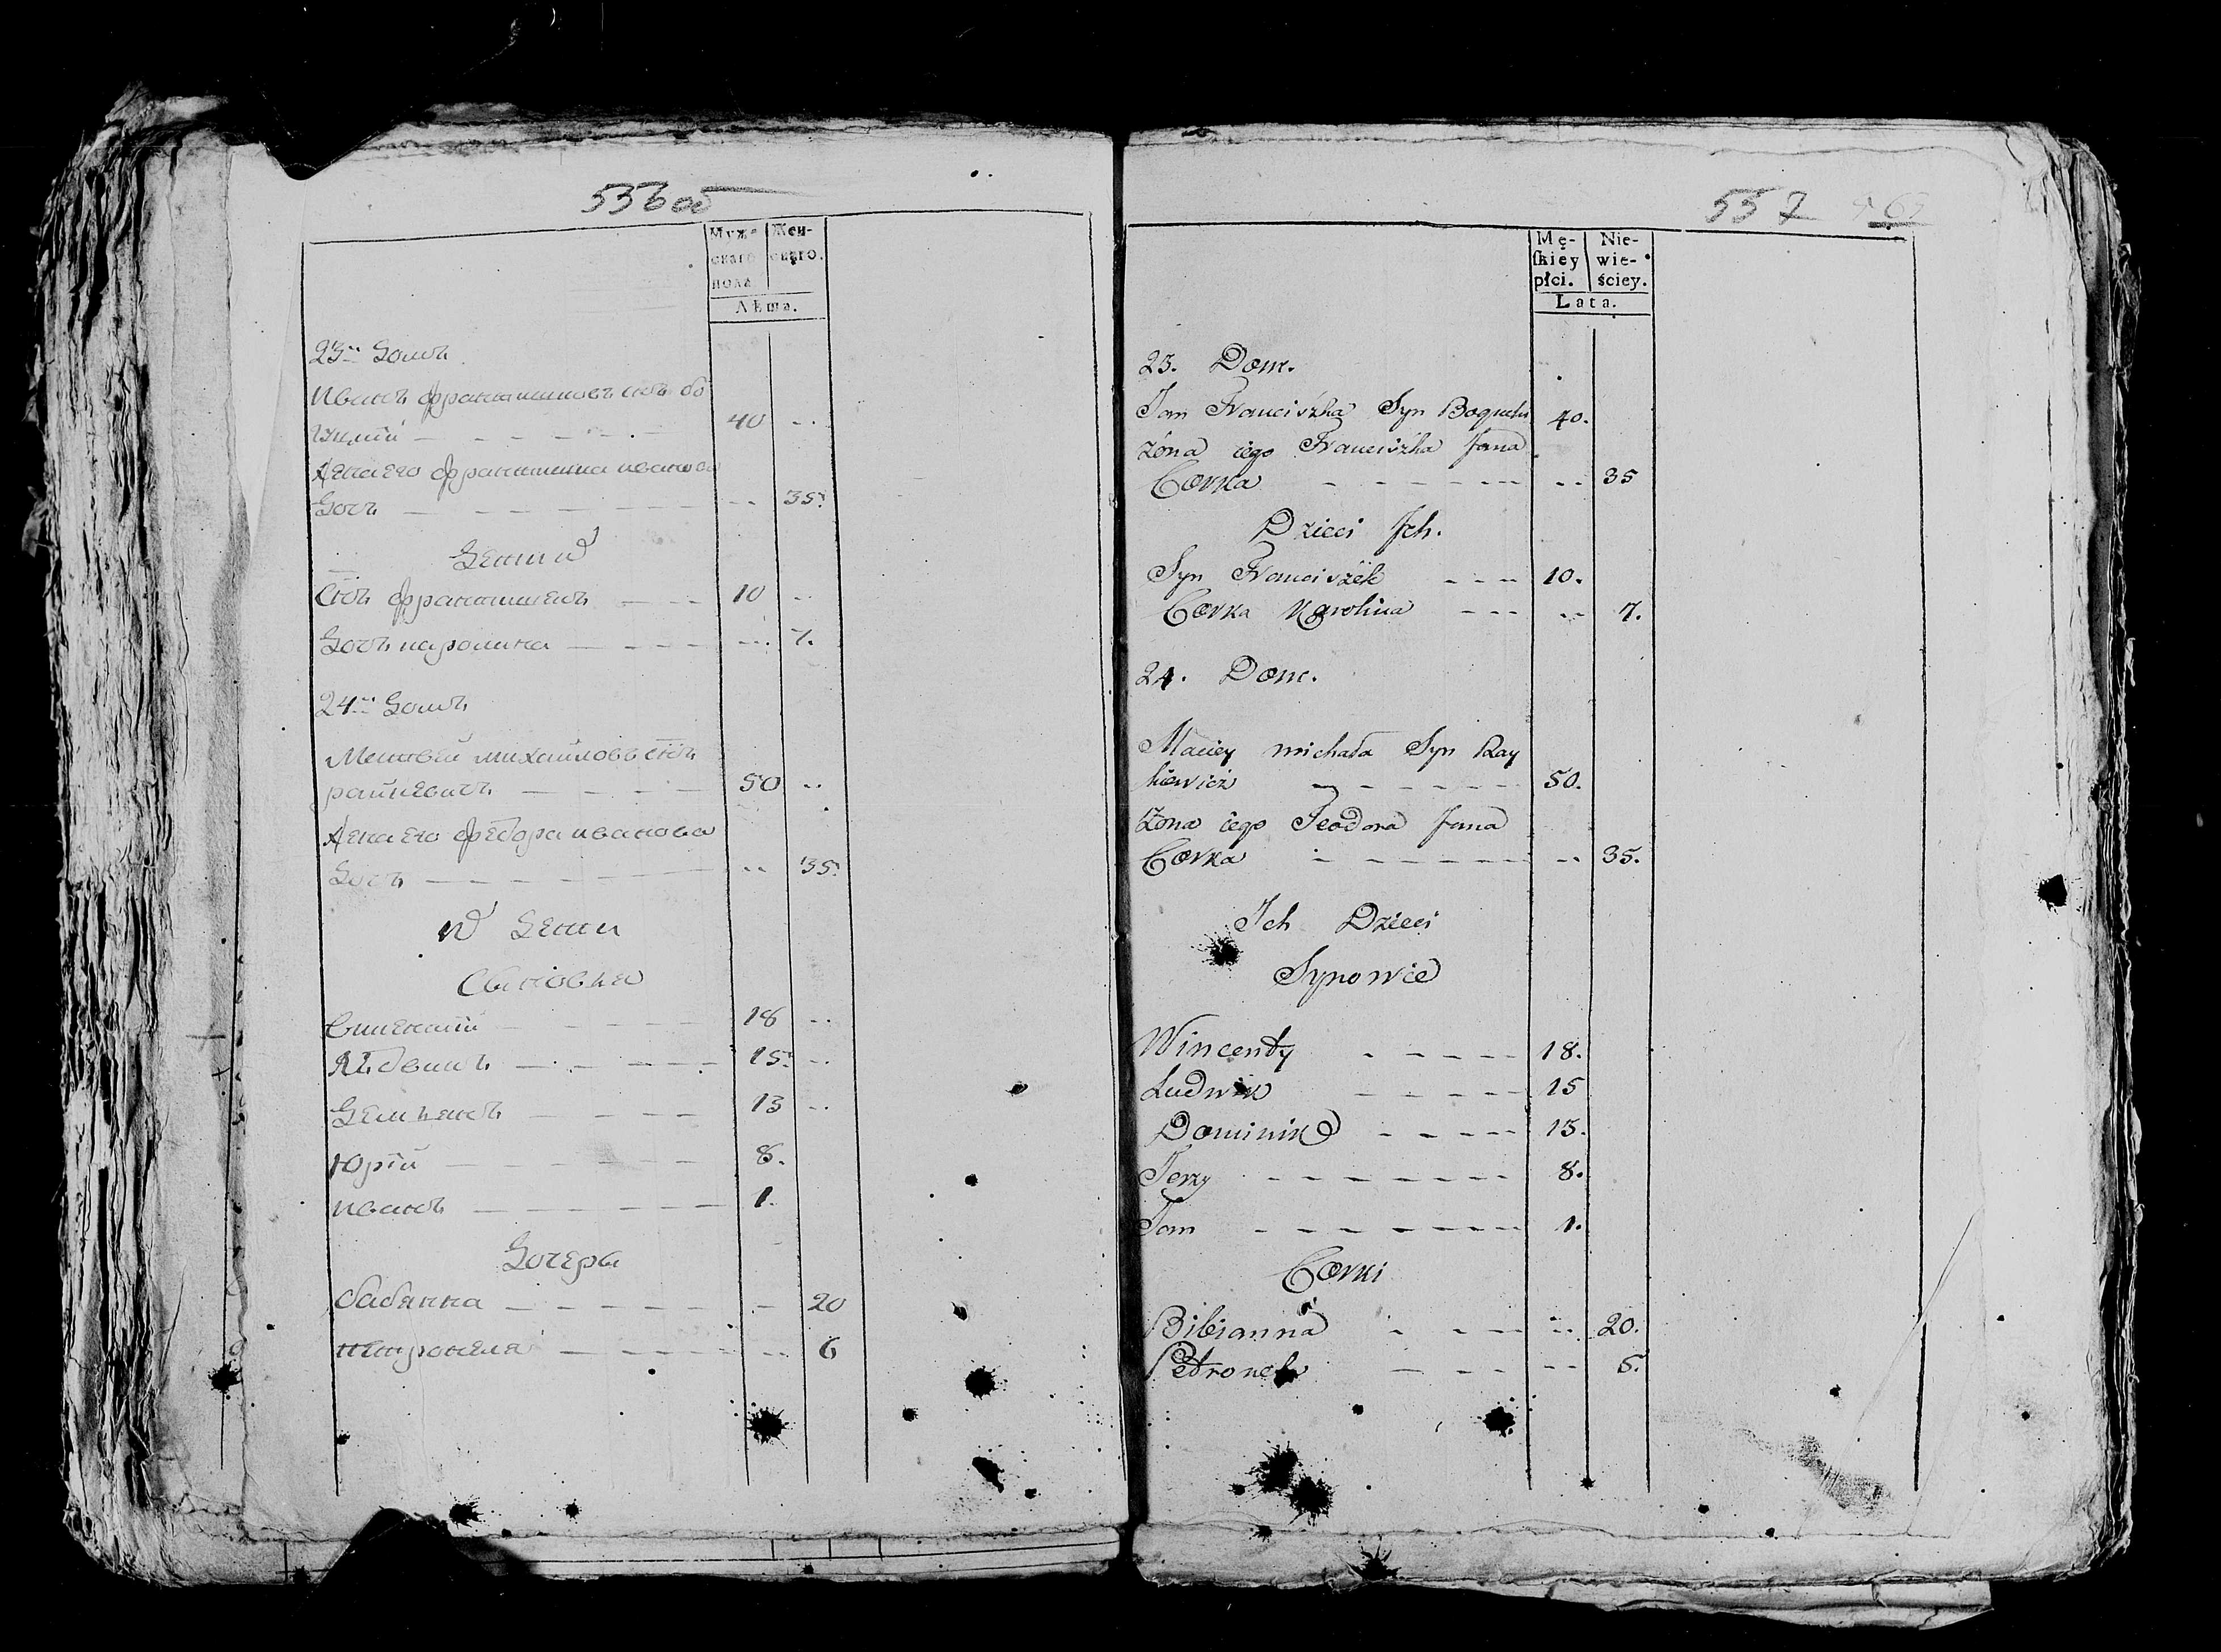 536 об
Муже
скаго
пола
Жен-
скаго.
Лѣта.
23й Домъ
Иванъ Франтишковъ снъ бо
40
Жена его Франтишка иванова
дочь 35.
Дети
Снъ Франтишекъ 10
Дочь каролина 7.
24й Домъ
Матвей михайловъ снъ
райкевичъ 50
Жена его Федора иванова
дочь 35.
Дети
Сыновья
Викентий 18
Лудвикъ 15.
13
Юрій 8.
иванъ 1.
Дочеры
бабянна 20
петронеля 6
557
Mę-
skiey
płci.
Nie-
wie-
ściey.
Lata.
23. Dom.
Jan Franciszka Syn 40.
żona iego Franciszka Jana
Corka 35
Dzieci Ich.
Syn Franciszek 10.
Corka Karolina 7.
24. Dom.
Maciey michała Syn Ray
kiewicz 50.
Zona iego Teodora Jana
Corka 35.
Ich Dzieci
Synowie
Wincenty 18.
Ludwik 15
Dominik 13.
Jerzy 8.
Jan 1.
Corki
Bibianna 20.
Petronela 6.